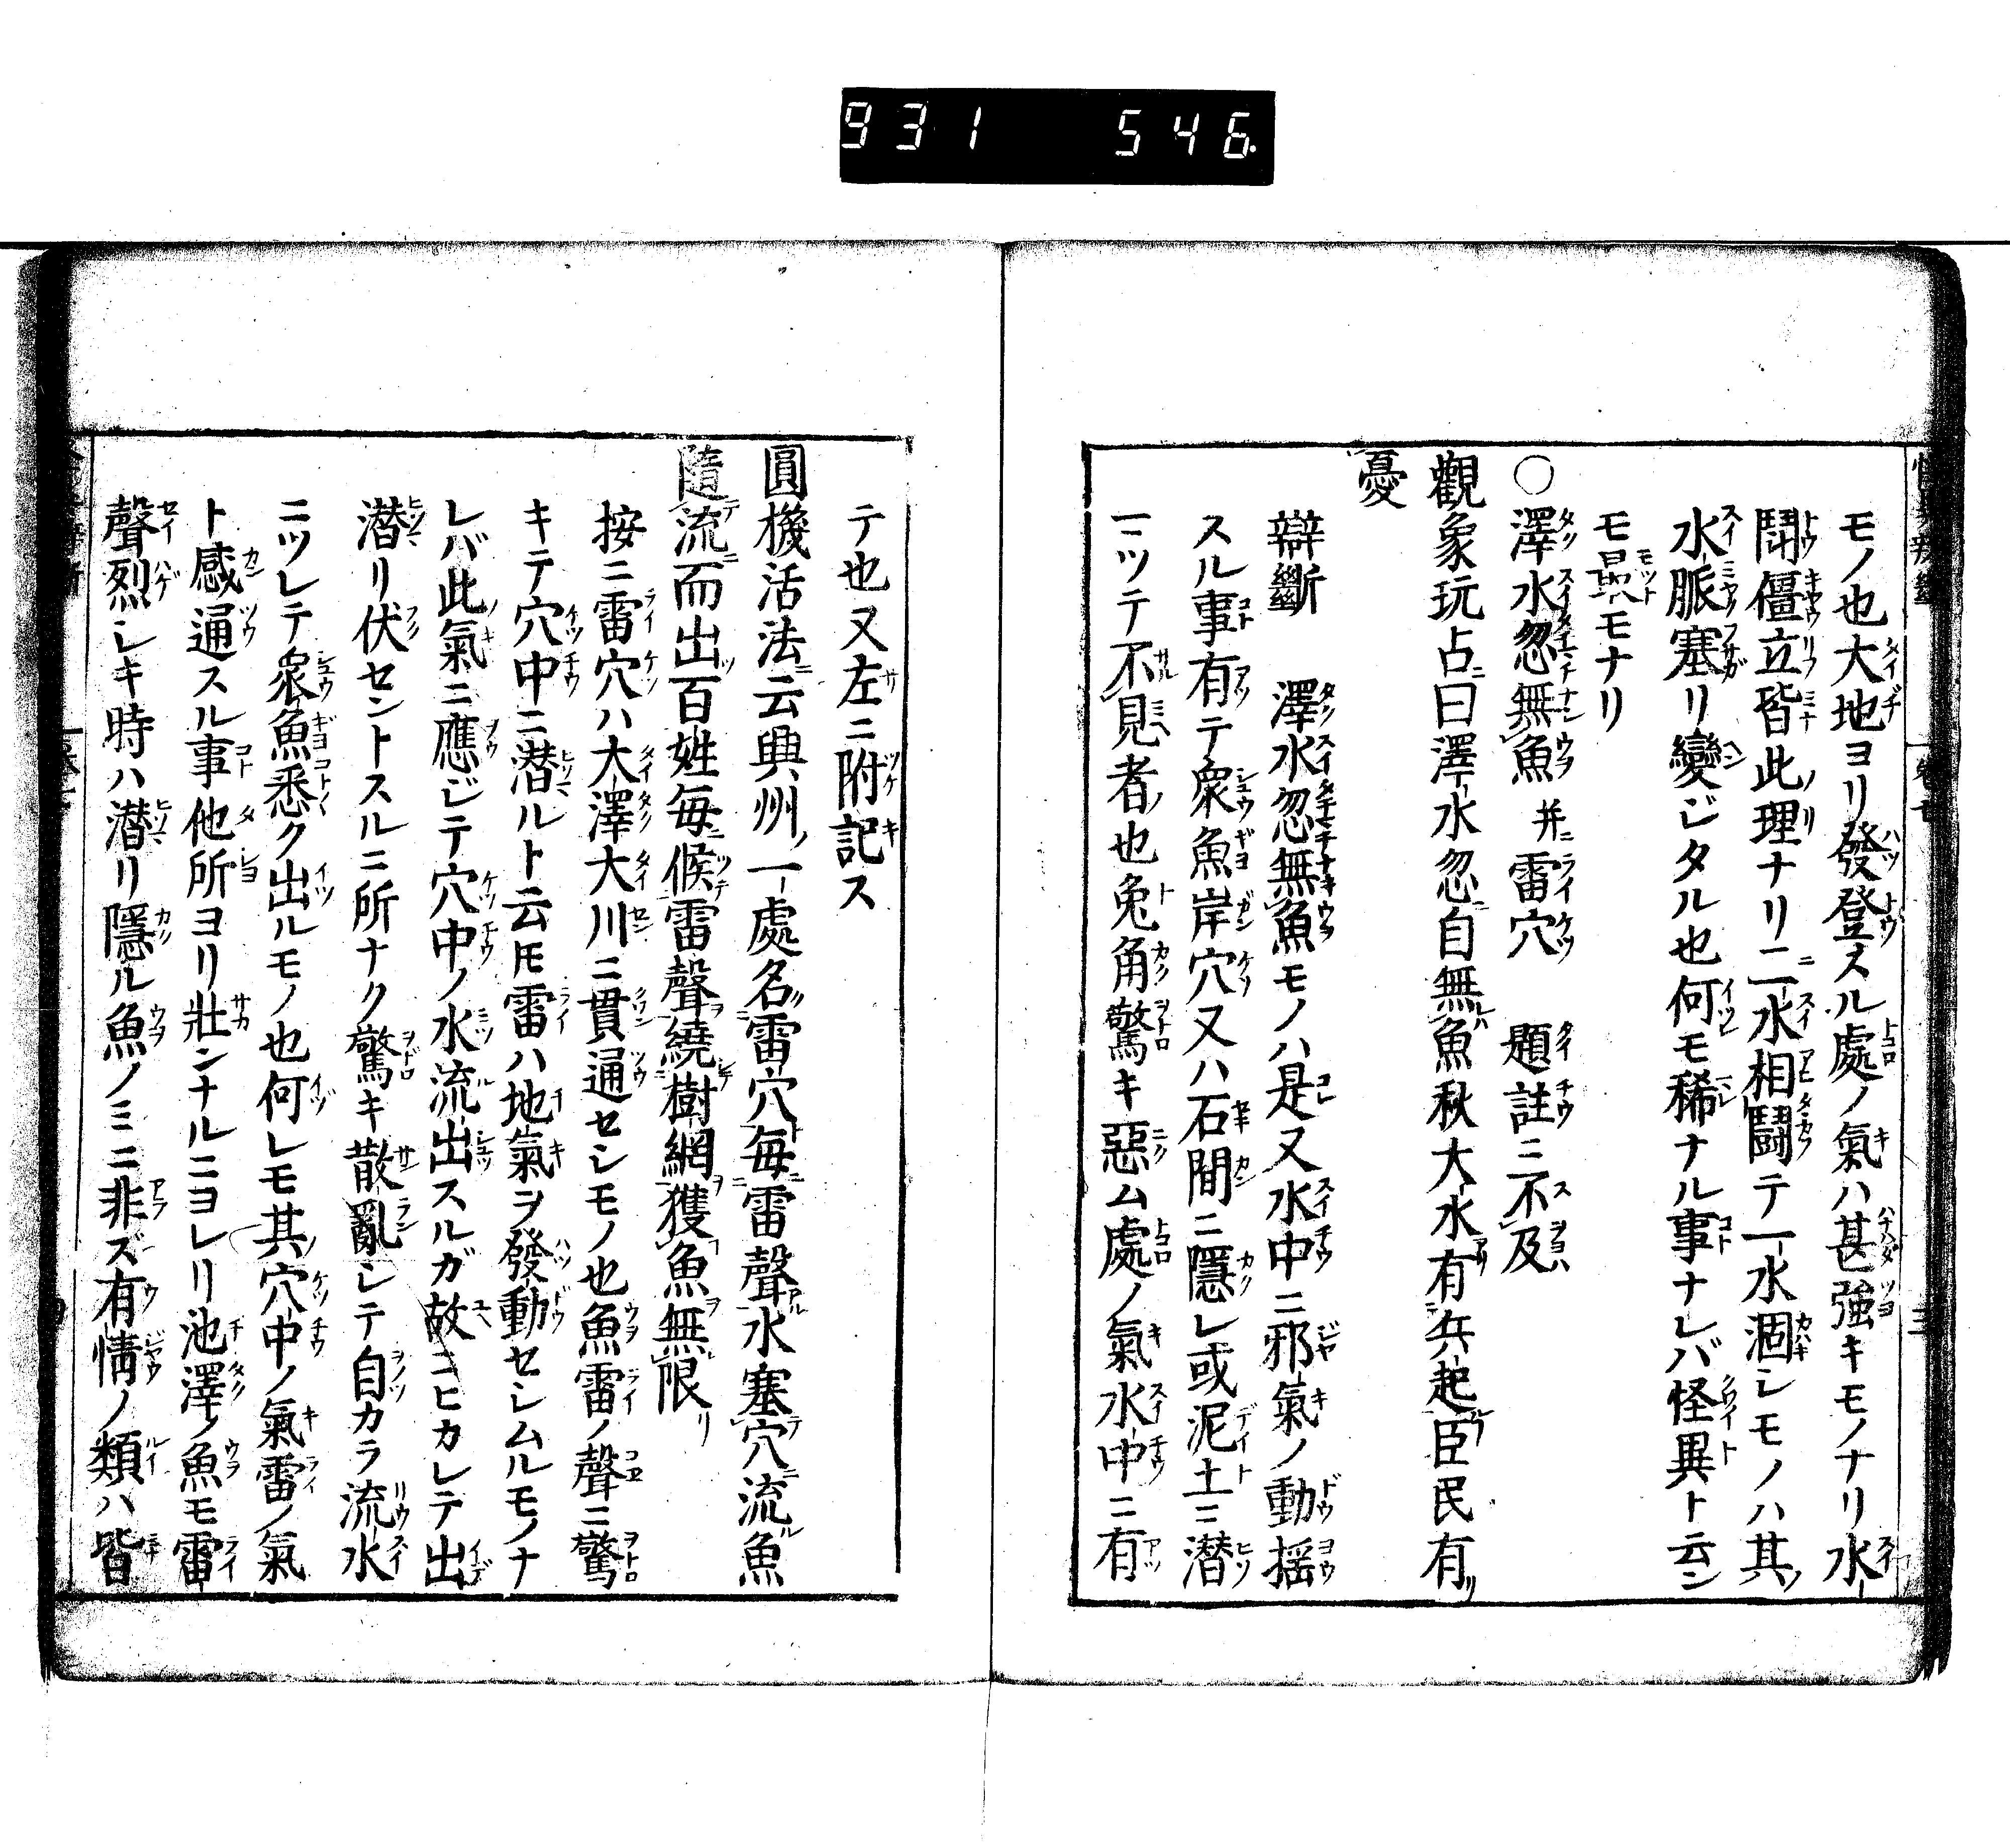 931 546
モノ也大地ヨリ發登スル處ノ氣ハ甚強キモノナリ水
鬪僵立皆此理ナリ二水相鬪テ一水涸レモノハ其
水脈塞リ變ジタル也何モ稀ナル事ナレバ怪異ト云ン
モ最モナリ
○澤水忽無魚 并雷穴 題註ニ不及
觀象玩占曰澤水忽自無魚秋大水有兵起臣民有
憂
辯斷 澤水忽無魚モノハ是又水中ニ邪氣ノ動揺
スル事有テ衆魚岸穴又ハ石間ニ隱レ或泥土ニ潜
ニツテ不見者也兔角驚キ惡ム處ノ氣水中ニ有
テ也又左ニ附記ス
圓機活法云興州一處名雷穴每雷聲水塞穴流魚
隨流而出百姓每候雷聲繞樹網獲魚無限
按ニ雷穴ハ大澤大川ニ貫通セシモノ也魚雷ノ聲ニ驚
キテ穴中ニ潜ルト云𪜈雷ハ地氣ヲ發動セシムルモノナ
レバ此氣ニ應ジテ穴中ノ水流出スルガ故ニヒカレテ出
潜リ伏セントスルニ所ナク驚キ散亂シテ自カラ流水
ニツレテ衆魚悉ク出ルモノ也何レモ其穴中ノ氣雷ノ氣
ト感通スル事他所ヨリ壯ンナルニヨレリ池澤ノ魚モ雷
聲烈シキ時ハ潜リ隱ル魚ノミニ非ズ有情ノ類ハ皆